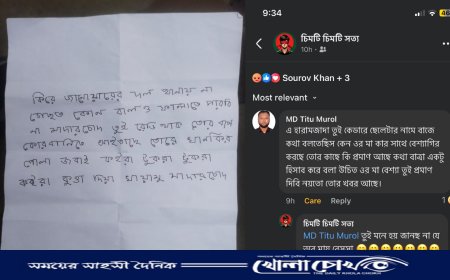 কিরে জানোয়ারের দল থানায় না
না মাদারচোদ তুই রেডি থাক তোর বাপ
পোলা জবাই কইরা টুকরা টুকরা
কইরা কুত্তা দিয়া খাওয়ামু মাদারচোদ
9:34
চিমটি চিমটি সত্য
10h
Sourov Khan + 3
Most relevant
MD Titu Murol
এ হারামজাদা তুই কেভারে ছেলেটার নামে বাজে
কথা বলতেছিস কেন ওর মা কার সাথে বেশ্যাগির
করছে তোর কাছে কি প্রমাণ আছে কথা বাত্রা একটু
হিসাব করে বলা উচিত ওর মা বেশ্যা তুই প্রমাণ
দিবি নয়তো তোর খবর আছে।
9h Care Reply
চিমটি চিমটি সত্য
MD Titu Murol তুই মনে হয় জানছ না যে
সময়ের সাহসী দৈনিক
খোলা চোখ
THE DAILY KHOLA CHOKH